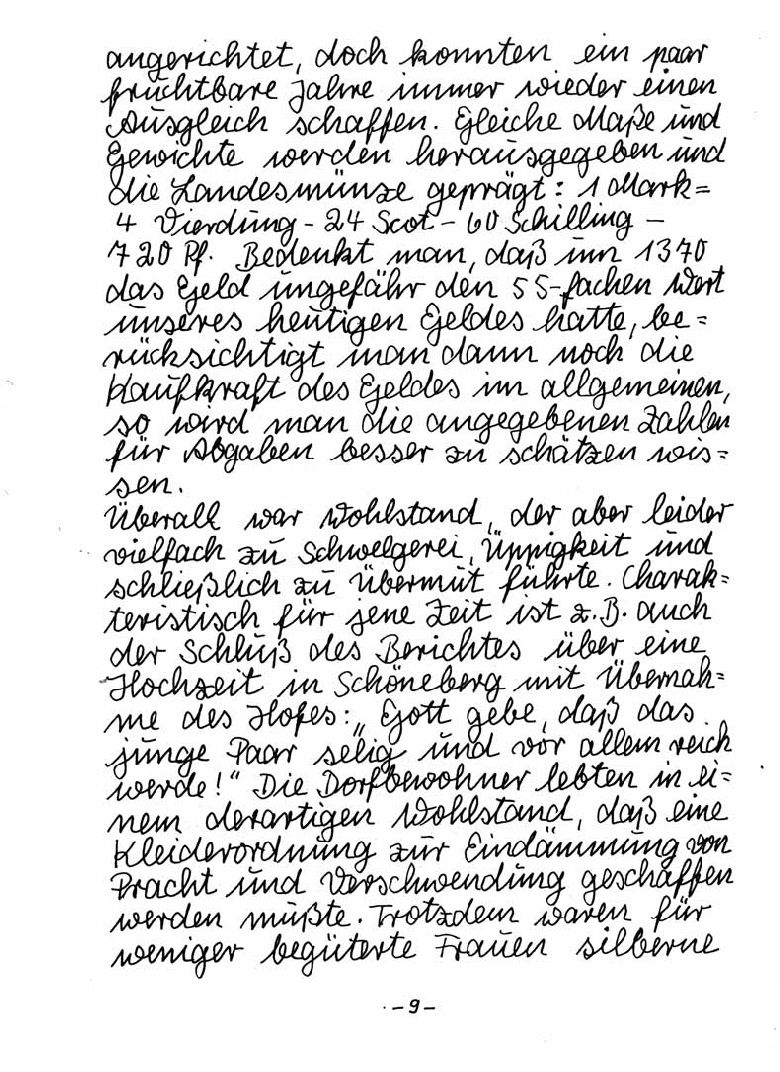 angerichtet, doch konnten ein paar
fruchtbare Jahre immer wieder einen
Ausgleich schaffen. Gleiche Maße und
Gewichte werden herausgegeben und
die Landesmünze geprägt: 1 Mark=
4 Vierdung - 24 Scot - 60 Schilling -
720 Pf. Bedenkt man, daß um 1370
das Geld ungefähr den 55-fachen Wert
unseres heutigen Geldes hatte, be=
rücksichtigt man dann noch die
Kaufkraft des Geldes im allgemeinen,
so wird man die angegebenen Zahlen
für Abgaben besser zu schätzen wis=
sen.
Überall war Wohlstand, der aber leider
vielfach zu Schwelgerei, Üppigkeit und
schließlich zu Übermut führte. Charak=
teristisch für jene Zeit ist z.B. auch
der Schluß des Berichtes über eine
Hochzeit in Schöneberg mit Übernah=
me des Hofes: „Gott gebe, daß das
junge Paar selig und vor allem reich
werde!" Die Dorfbewohner lebten in ei=
nem derartigen Wohlstand, daß eine
Kleiderordnung zur Eindämmung von
Pracht und Verschwendung geschaffen
werden mußte. Trotzdem waren für
weniger begüterte Frauen silberne
-9-